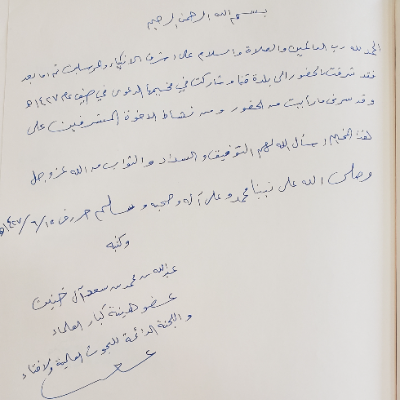 بسم الله الرحمن الرحيم
الحمد لله رب العالمين والصلاة والسلام على أشرف الأنبياء والمرسلين ثم أما بعد
فقد شرفت بالحضور الى بلدة قيا وشاركت في مخيمها الدعوي في صيف عام ١٤٢٧هـ
وقد سرني ما رأيت من الحضور ومن نشاط الاخوة المشرفين على
هذا المخيم اسأل الله لهم التوفيق والسداد والثواب من الله عز وجل
وصلى الله على نبينا محمد وعلى آله وصحبه وسلم حرر في ١٥/٦/١٤٢٧هـ
وكتبه
عبدالله بن محمد بن سعد آل خنين
عضو هيئة كبار العلماء
واللجنة الدائمة للبحوث العلمية والافتاء